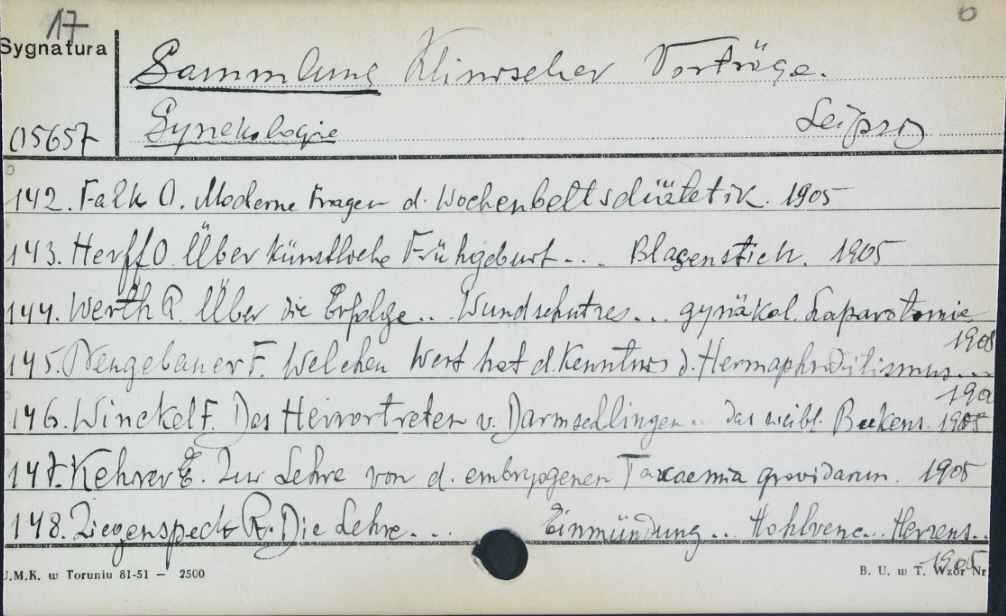 17
Sygnatura
Sammlung Klinischer Vorträge.
O5657
Gynekologie Leipzig
142. Falk O. Moderne Fragen d. Wochenbettsdiätetik. 1905
143. Herff O. Über künstliche Frühgeburt... Blasenstich. 1905
144. Werth R. Über die Erfolge.. Wundschutzes... gynäkol. Laparotomie
1905
145. Neugebauer F. Welchen Wert hat d. Kenntnis d. Hermaphroditismus...
190
146. Winckel F. Das Hervortreten v. Darmschlingen.. das weibl. Beckens. 1905
147. Kehrer E. Zur Lehre von d. embryogenen Toxaemia gravidarum. 1905
148. Ziegenspeck R. Die Lehre... Einmündung... Hohlvene... Herzens..
1905
U.M.K. w Toruniu 81-51 — 2500
B. U. w T. Wzór Nr